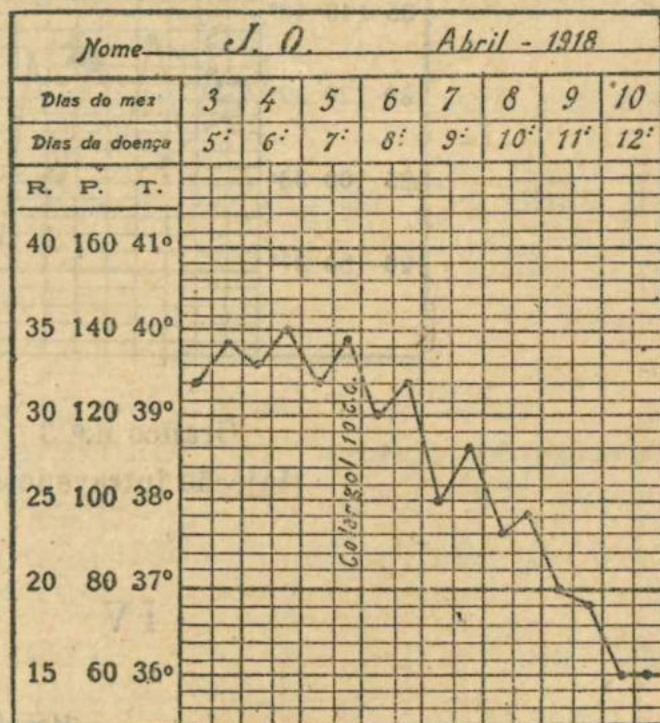 Nome J. O. Abril - 1918
Dias do mez 3 4 5 6 7 8 9 10
Dias da doença 5: 6: 7: 8: 9: 10: 11: 12:
R. P. T.
40 160 41º
35 140 40º
30 120 39º
25 100 38º
20 80 37º
15 60 36º
Colargol 10 c.c.
IV